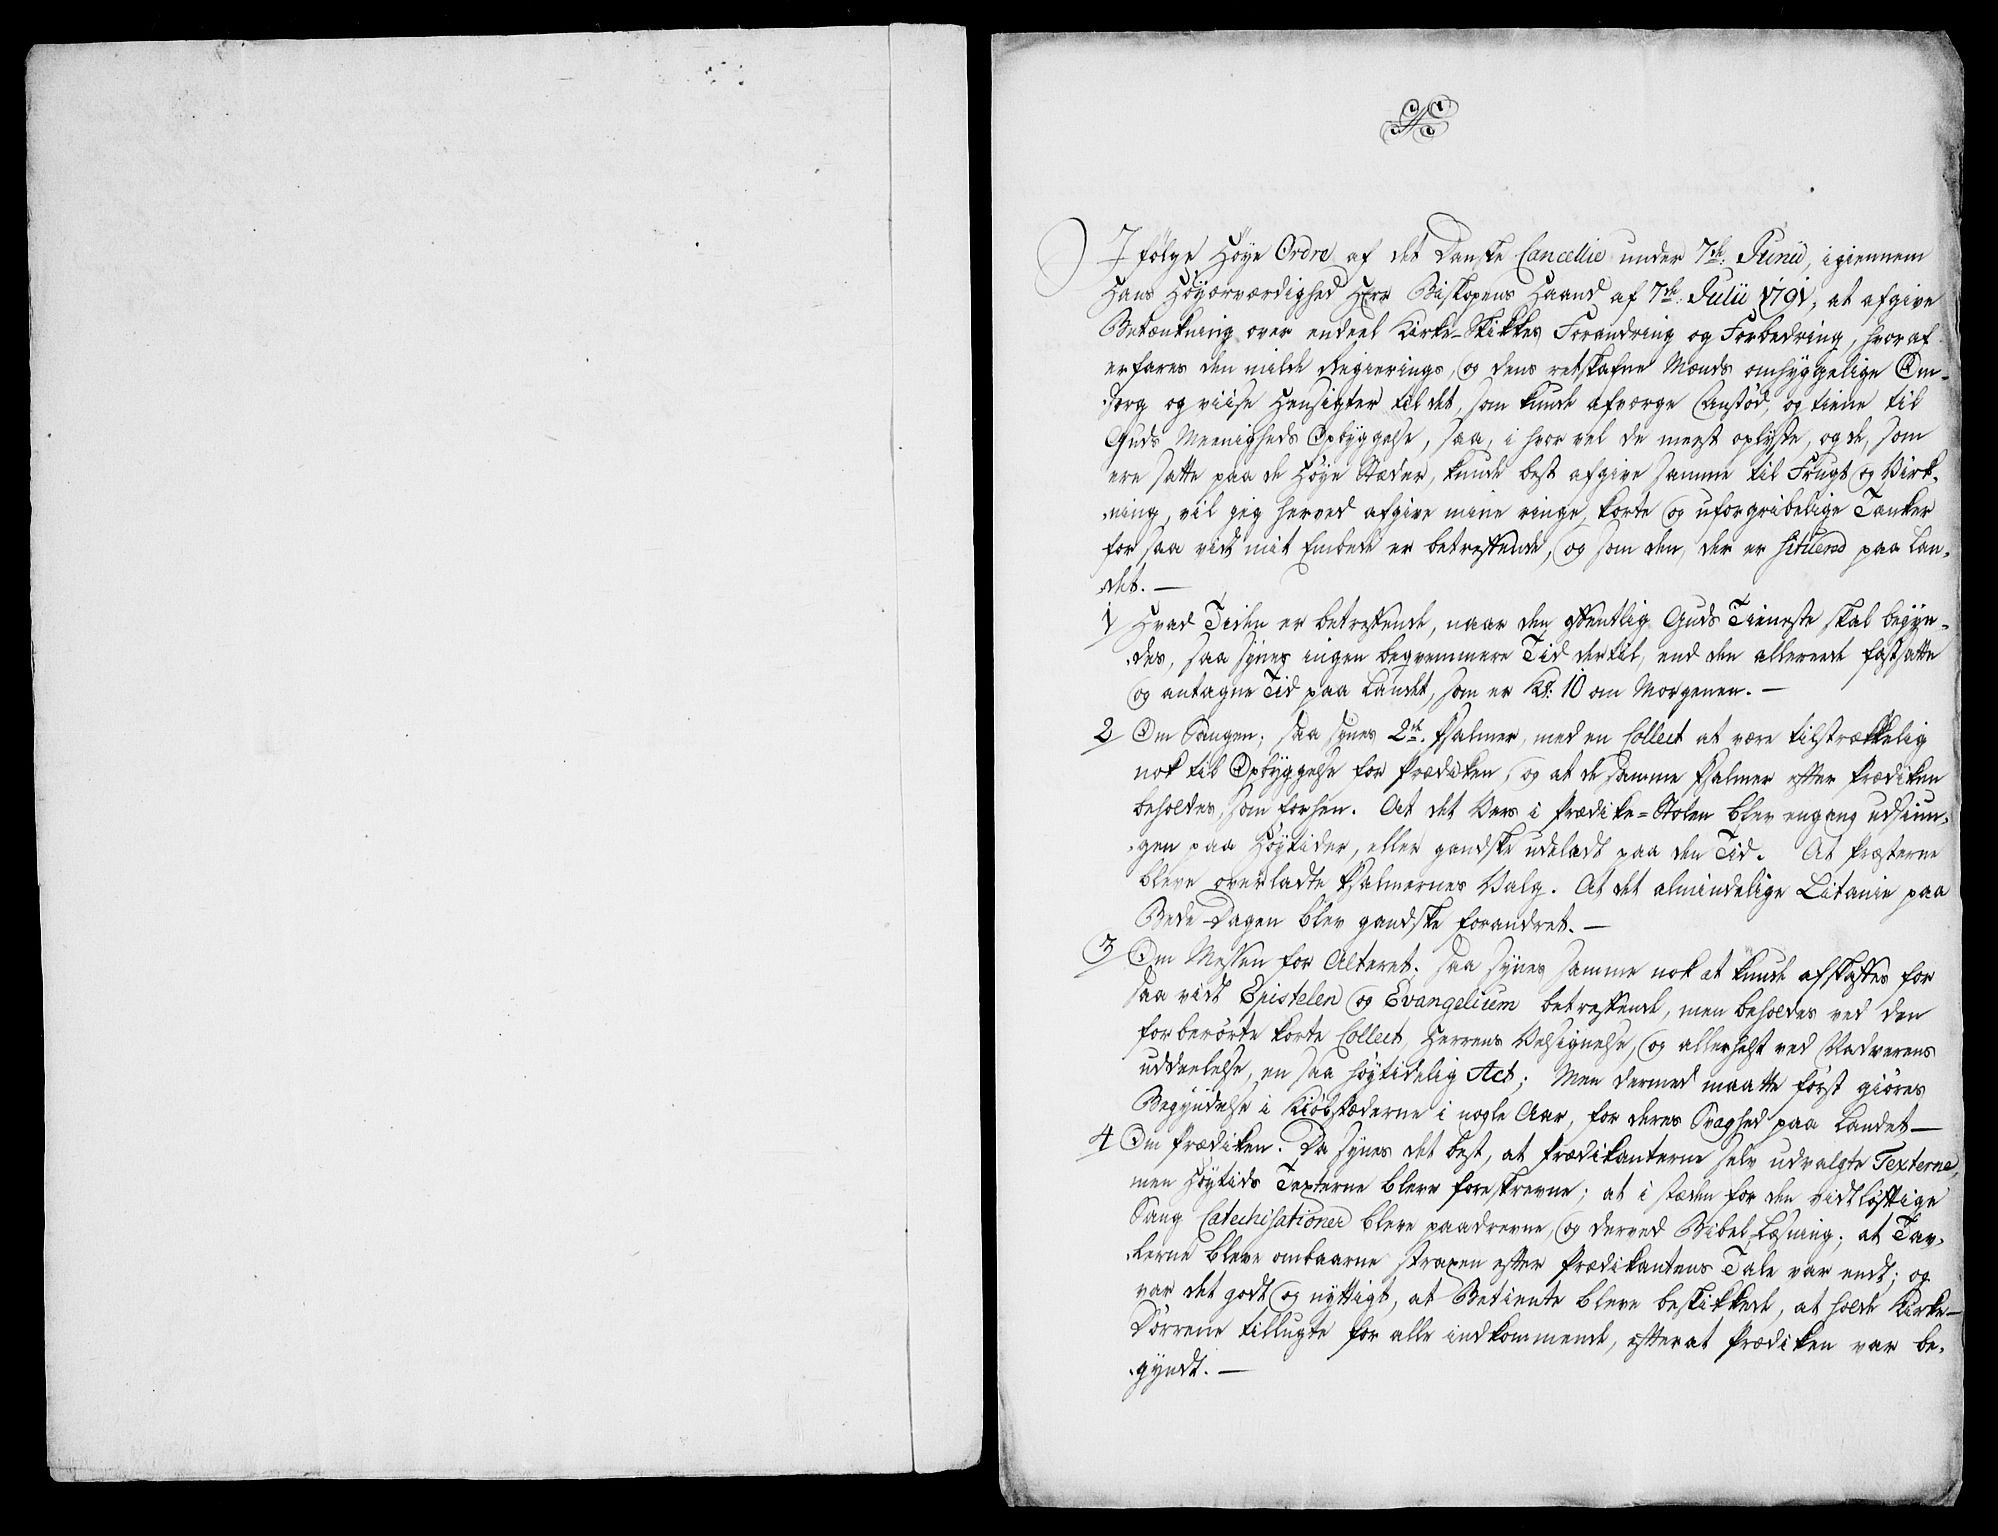 I følge Høye Ordre af det Danske Cancellie under 7de Junii, igiennem
Hans Høyærværdighed Herr Biskopens Haand af 7de Julii 1791, at afgive
Betænkning over endeel Kirke-Skikkes Forandring og Forbedring, hvoraf
erfares den milde Regierings, og dens retskafne Mænds omhyggelige Om-
sorg og viise Hensigter til det, som kunde afværge Anstød, og tiene til
Guds Meenigheds Opbyggelse, saa, i hvor vel de meest oplyste, og de, som
ere satte paa de Høye Stæder, kunde best afgive samme til Frugt og Virk-
ning, vil jeg herved afgive mine ringe, korte og uforgribelige Tanker
for saa vidt mit Embede er betreffende, og som den, der er situerd paa Lan-
det. —
1 Hvad Tiden er betreffende, naar den offentlig Guds Tieneste skal begyn-
des, saa synes ingen beqvemmere Tid dertil, end den allereede fastsatte
og antagne Tid paa Landet, som er Kl: 10 om Morgenen. —
2 Om Sangen; saa synes 2de Psalmer, med en Collect at være tilstrækkelig
nok til Opbyggelse for Prædiken, og at de samme Psalmer efter Prædiken
beholdes, som forhen. At det Vers i Prædike-Stolen blev engang udsiun-
gen paa Høytider, eller gandske udeladt paa den Tid. At Præsterne
bleve overladte Psalmernes Valg. At det almindelige Litanie paa
Bede-Dagen blev gandske forandret. —
3 Om Messen for Alteret. Saa synes samme nok at kunde afskaffes for
saa vidt Epistelen og Evangelium betreffende, men beholdes ved den
forberørte korte Collect, Herrens Velsignelse, og allerhelst ved Nadverens
uddeelelse, en saa høytidelig Act; Men dermed maatte først giøres
Begyndelse i Kiøbstæderne i nogle Aar, for deres Svaghed paa Landet —
4 Om Prædiken. Da synes det best, at Prædikanterne selv udvalgte Texterne,
men Høytids Texterne bleve foreskrevne; at i stæden for den vidtløftige
Sang Catechisationer bleve paadrevne, og derved Bibel Læsning; at Tav-
lerne bleve ombaarne straxen efter Prædikantens Tale var endt; og
var det godt og nyttigt, at Betiente bleve beskikkede, at holde Kirke-
Dørrene tillugte for alle indkommende, efterat Prædiken var be-
gyndt. —